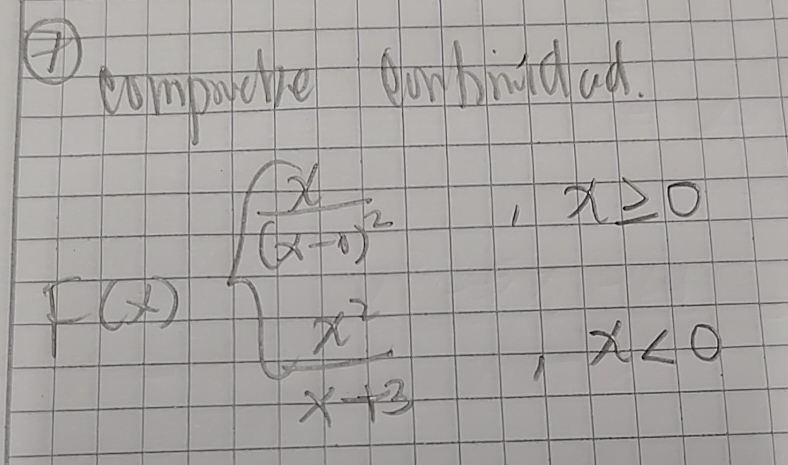 7
compruebe continuidad.
F(x) { x/(x-1)² , x ≥ 0
x²/x+3 , x < 0